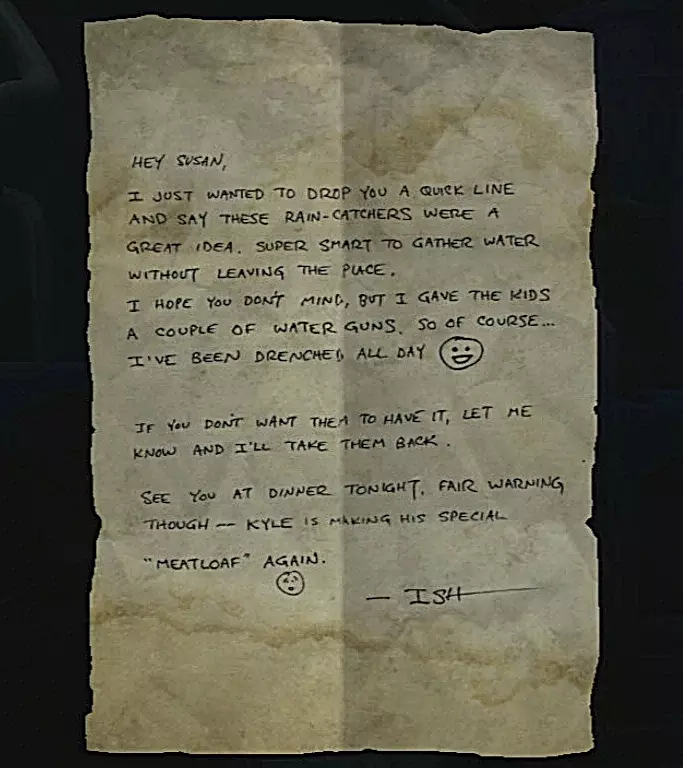 HEY SUSAN,
I JUST WANTED TO DROP YOU A QUICK LINE
AND SAY THESE RAIN-CATCHERS WERE A
GREAT IDEA. SUPER SMART TO GATHER WATER
WITHOUT LEAVING THE PLACE.
I HOPE YOU DON'T MIND, BUT I GAVE THE KIDS
A COUPLE OF WATER GUNS. SO OF COURSE...
I'VE BEEN DRENCHED ALL DAY
IF YOU DON'T WANT THEM TO HAVE IT, LET ME
KNOW AND I'LL TAKE THEM BACK.
SEE YOU AT DINNER TONIGHT. FAIR WARNING
THOUGH -- KYLE IS MAKING HIS SPECIAL
"MEATLOAF" AGAIN.
— ISH